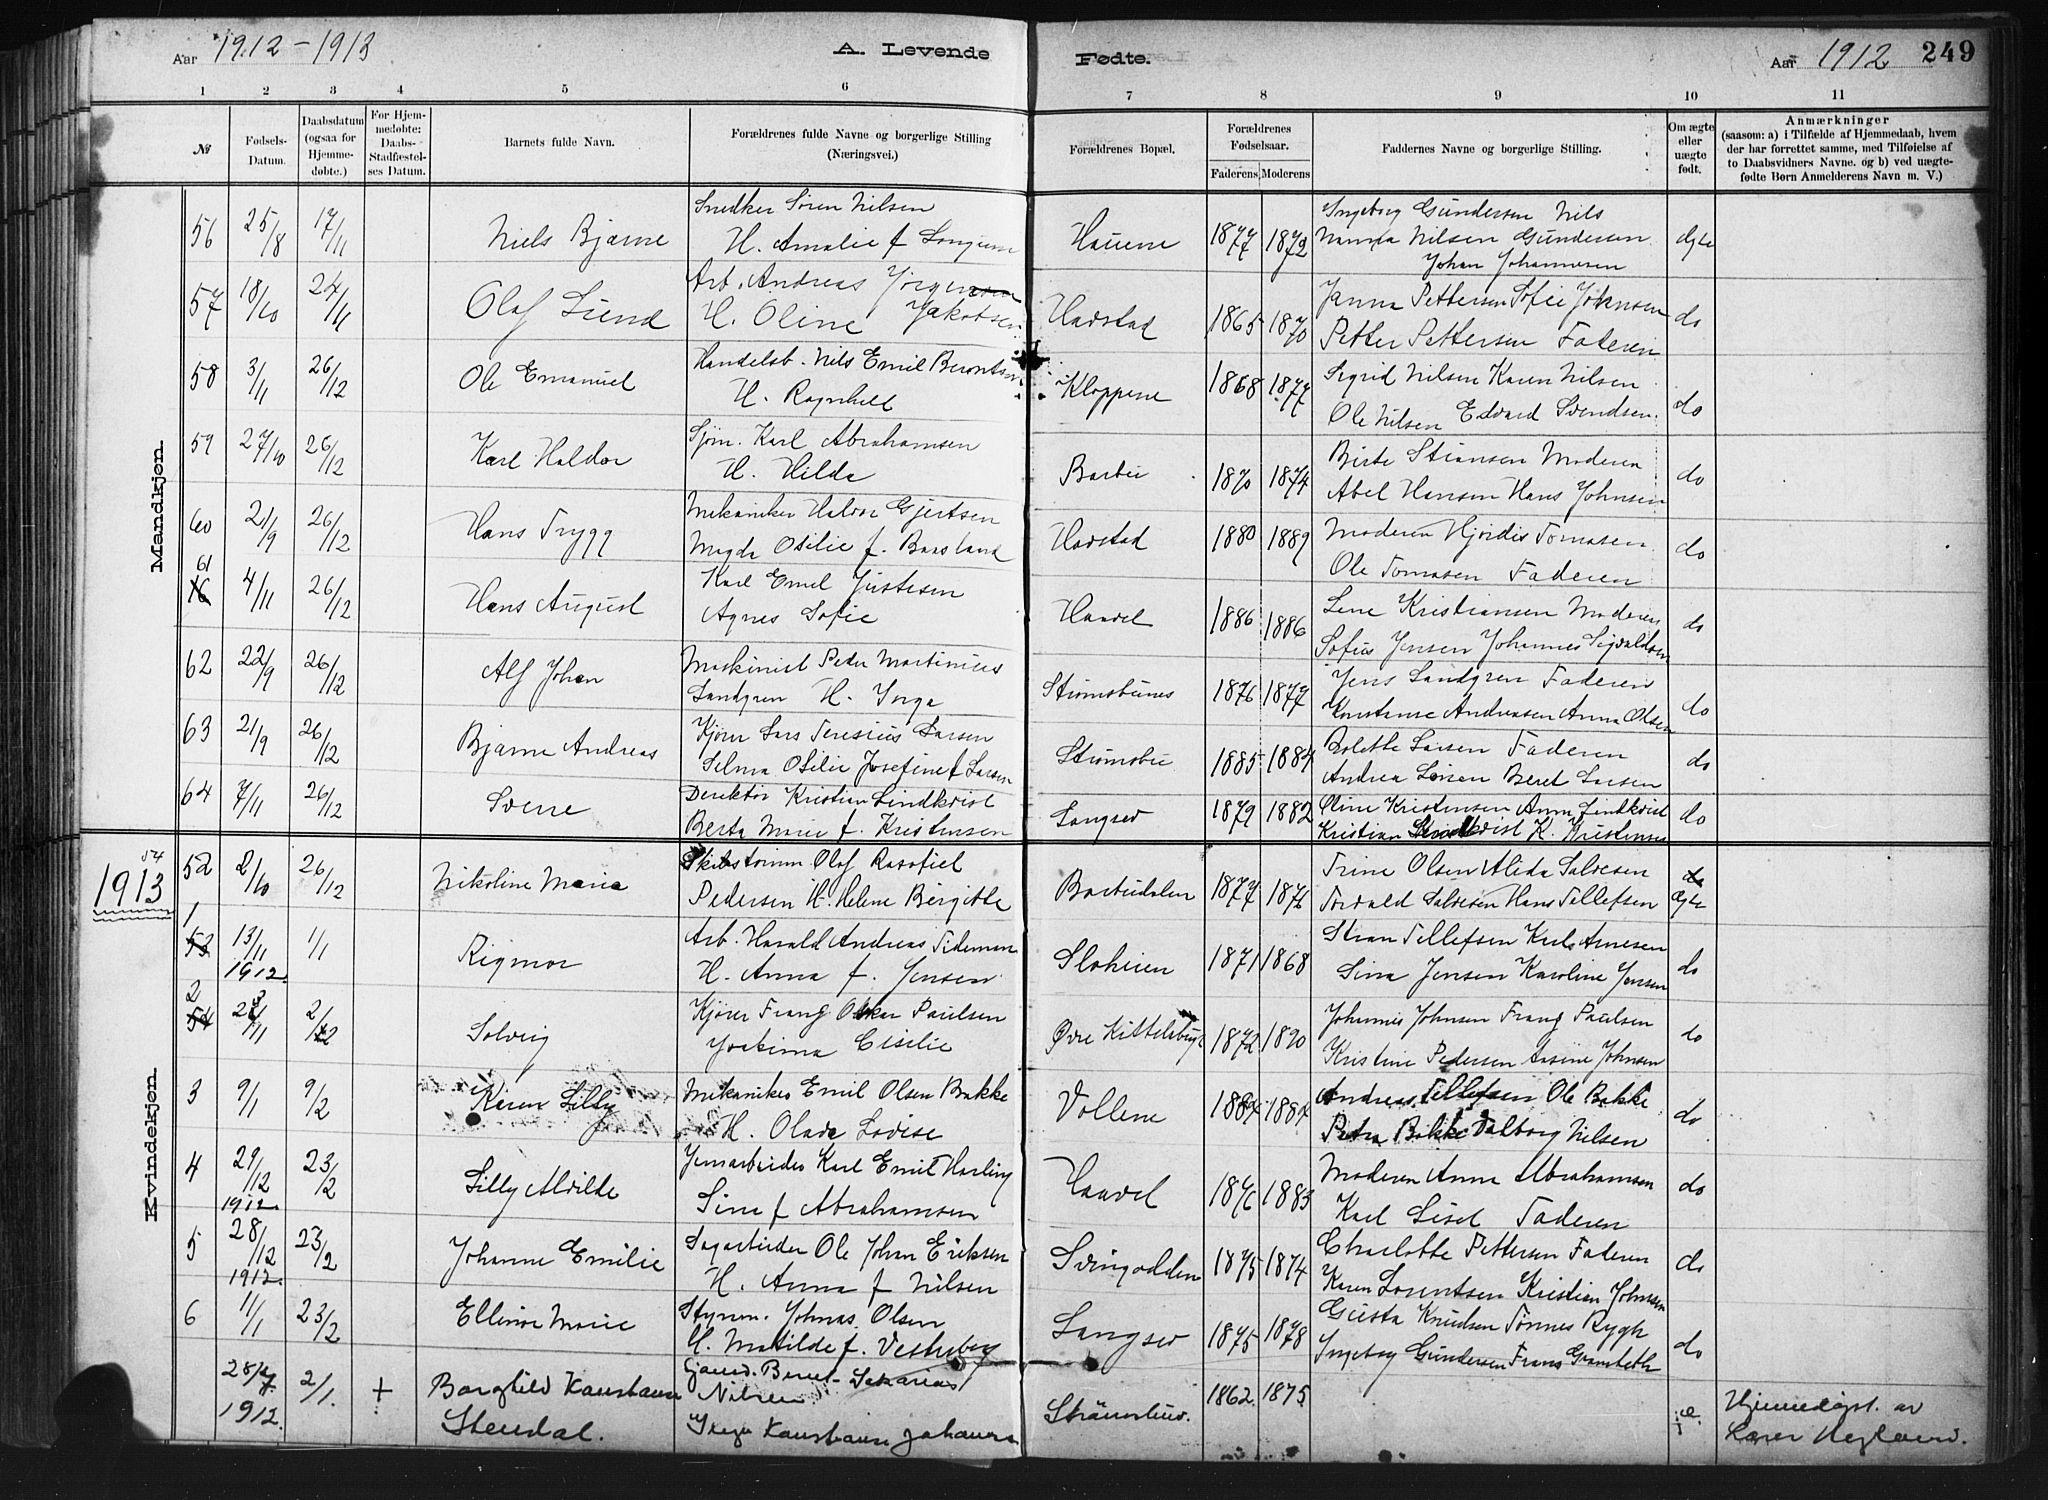 Aar 1912-1913 A. Levende Fødte. Aar 1912 249
1 2 3 4 5 6 7 8 9 10 11
№ Fødsels-Datum. Daabsdatum (ogsaa for Hjemme-døbte.) For Hjem-medøbte: Daabs-Stadfæstel-ses Datum. Barnets fulde Navn. Forældrenes fulde Navne og borgerlige Stilling (Næringsvei.) Forældrenes Bopæl. Forældrenes Fødselsaar. Faderens Moderens Faddernes Navne og borgerlige Stilling. Om ægte eller uægte født. Anmærkninger (saasom: a) i Tilfælde af Hjemmedaab, hvem der har forrettet samme, med Tilføielse af to Daabsvidners Navne. og b) ved uægte-fødte Børn Anmelderens Navn m. V.)
Mandkjøn.
Snedker Søren Nilsen Ingeborg Gundersen Nils
56 25/8 17/11 Niels Bjarne H. Amalie f. Hauene 1877 1872 Nanna Nilsen Gundersen ægte
Johan Johannesen
57 18/10 24/11 Olaf Lund Arb. Andreas Jørgensen Janna Pettersen Sofie Johnsen
H. Oline Jakobsen Havstad 1865 1870 Petter Pettersen Faderen do
58 3/11 26/12 Ole Emanuel Handelsb. Nils Emil Berentsen Sigrid Nilsen Karen Nilsen
H. Ragnhild Kloppene 1868 1877 Ole Nilsen Edvard Svendsen. do
59 27/10 26/12 Karl Haldor Sjøm. Karl Abrahamsen Birte Stiansen Moderen
H. Hilda Barbu 1870 1874 Abel Hansen Hans Johnsen do
60 21/9 26/12 Hans Trygg Mekaniker Halvor Gjertsen Moderen Hjørdis Tomasen
Magda Otilie f. Baasland Havstad 1880 1889 Ole Tomasen Faderen do
61 4/11 26/12 Hans August Karl Emil Justesen Lene Kristiansen Moderen
Agnes Sofie Haavel 1886 1886 Sofus Jensen Johannes Sigvaldsen do
62 22/9 26/12 Alf Johan Maskinist Peder Martinius Jens Sandgren Faderen
Sandgren H. Inga Strømsbunes 1876 1879 Konstanse Andreasen Anna Olsen do
63 21/9 26/12 Bjarne Andreas Kjører Lars Teresius Larsen Faderen
Selma Otilie Josefine f. Larsen Strømsbu 1885 1884 Andrea Larsen Beret Larsen do
64 7/11 26/12 Sverre Direktør Kristian Lindkvist Oline Kristensen Anna Lindkvist
Berta Marie f. Kristensen Langsev 1879 1882 Kristian Lindkvist K. Kristensen do
Kvindekjøn.
54
52 2/10 26/12 Nikoline Marie Olaf Rasafiel Trine Olsen Alida Salvesen do
1913 Pedersen H. Helene Birgitte Barbudalen 1877 1876 Torvald Salvesen Hans Tellefsen ægte
1 53 13/11 1912 1/1 Rigmor Arb. Harald Andreas Tideman Stian Tellefsen Karl Arnesen
H. Anna f. Jensen 1871 1868 Sina Jensen Karoline Jensen do
2 54 23/11 2/2 Solveig Kjører Frans Oskar Paulsen Johannes Johnsen Frans Paulsen
Joakima Cisilie Øvre Kittelsbugt 1872 1890 Kristine Pedersen Johnsen do
3 9/1 9/2 Karen Lilly Mekaniker Emil Olsen Bakke Andreas Tellefsen Ole Bakke
H. Olava Lovise Vollene 1884 1884 Petra Bakke Valborg Nilsen do
4 29/12 1912 23/2 Lilly Alvilde Jernarbeider Karl Emil Harling Moderen Anna Abrahamsen
Sina f Abrahamsen Haavel 1876 1883 Karl Faderen do
5 28/12 1912. 23/2 Johanne Emilie Sagarbeider Ole Johan Eriksen Charlotte Pettersen Faderen
H. Anna f Nilsen Svinodden 1875 1874 Karen Lorentsen Kristian Johnsen do
6 11/1 23/2 Ellinor Marie Styrm. Johnas Olsen Gusta Knudsen Tønnes Rygh
H. Matilde f. Vesterberg Langsev 1875 1878 Ingeborg Gundersen Frans do
28/12 1912. 2/1. + Borghild Konstanse Nilsen 1862 1875 Hjemmedøpt av
Stendal. Inga Konstanse Johansen Strømsbu.